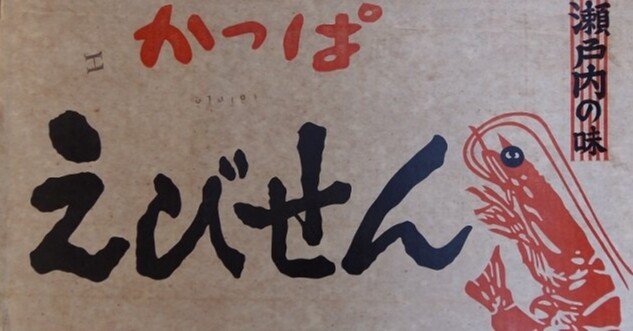 かっぱ
えびせん
瀬戸内の味
H